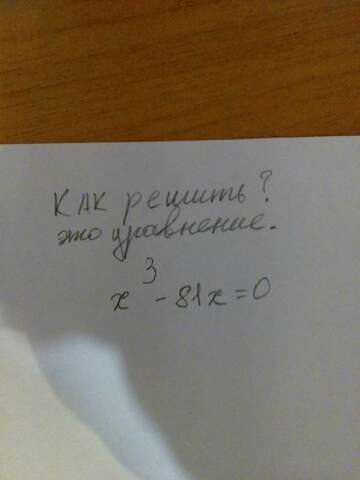 КАК решить?
это уравнение.
x³ - 81x = 0